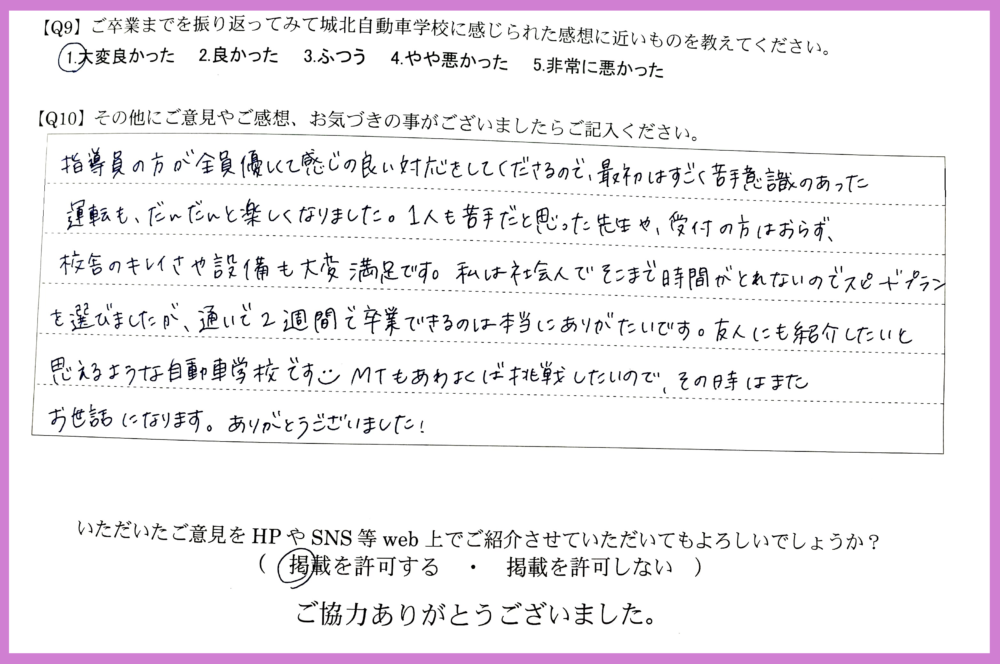 【Q9】ご卒業までを振り返ってみて城北自動車学校に感じられた感想に近いものを教えてください。
1.大変良かった 2.良かった 3.ふつう 4.やや悪かった 5.非常に悪かった
【Q10】その他にご意見やご感想、お気づきの事がございましたらご記入ください。
指導員の方が全員優しくて感じの良い対応をしてくださるので、最初はすごく苦手意識のあった
運転も、だんだんと楽しくなりました。1人も苦手だと思った先生や、受付の方はおらず、
校舎のキレイさや設備も大変満足です。私は社会人でそこまで時間がとれないのでスピードプラン
を選びましたが、通いで2週間で卒業できるのは本当にありがたいです。友人にも紹介したいと
思えるような自動車学校です MTもあわよくば挑戦したいので、その時はまた
お世話になります。ありがとうございました!
いただいたご意見をHPやSNS等web上でご紹介させていただいてもよろしいでしょうか?
( 掲載を許可する ・ 掲載を許可しない )
ご協力ありがとうございました。